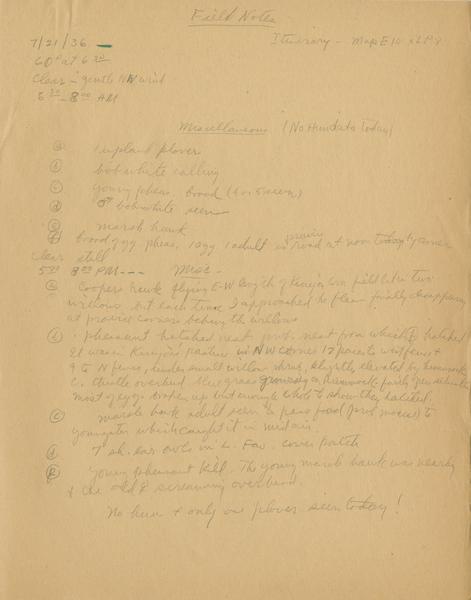 Field Notes
7/21/36 — Itinerary - Map E 10
60° at 6 30
Clear - gentle NW wind
5 30 - 8 00 AM
Miscellaneous (No Hun data Today)
a 1 upland plover
b bobwhite calling
c young pheas. brood (4 or 5 seen)
d ♂ bobwhite seen
e marsh hawk
f brood of yg pheas. 1 yg 1 adult in road at prairie corner
Clear still
5 00 8 00 PM --- Misc.
a Coopers hawk flying E-W length of corn field betw two
willows but each time I approached he flew finally disappearing
at prairie corners behind the willows
b pheasant hatched nest prob. nest from which hatched
It was in pasture in NW corner 12 paces W of fence &
9 to N fence, under small willow shrub, slightly elevated by hummock
c. thistle overhead blue grass growing on hummock
most of eggs broken up but enough whole to show they hatched.
c marsh hawk adult seen to pass food (prob mouse) to
youngster which caught it in midair.
d 7 sh. ear owls in L. Fav. cover patch
e Young pheasant kill. The young marsh hawk was nearby
& the old ♀ screaming overhead.
No hun & only one plover seen today!